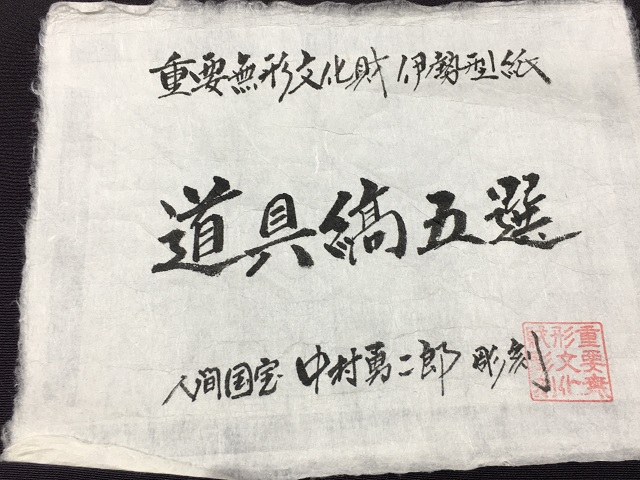 重要無形文化財 伊勢型紙
道具縞五選
人間国宝 中村勇二郎 彫刻